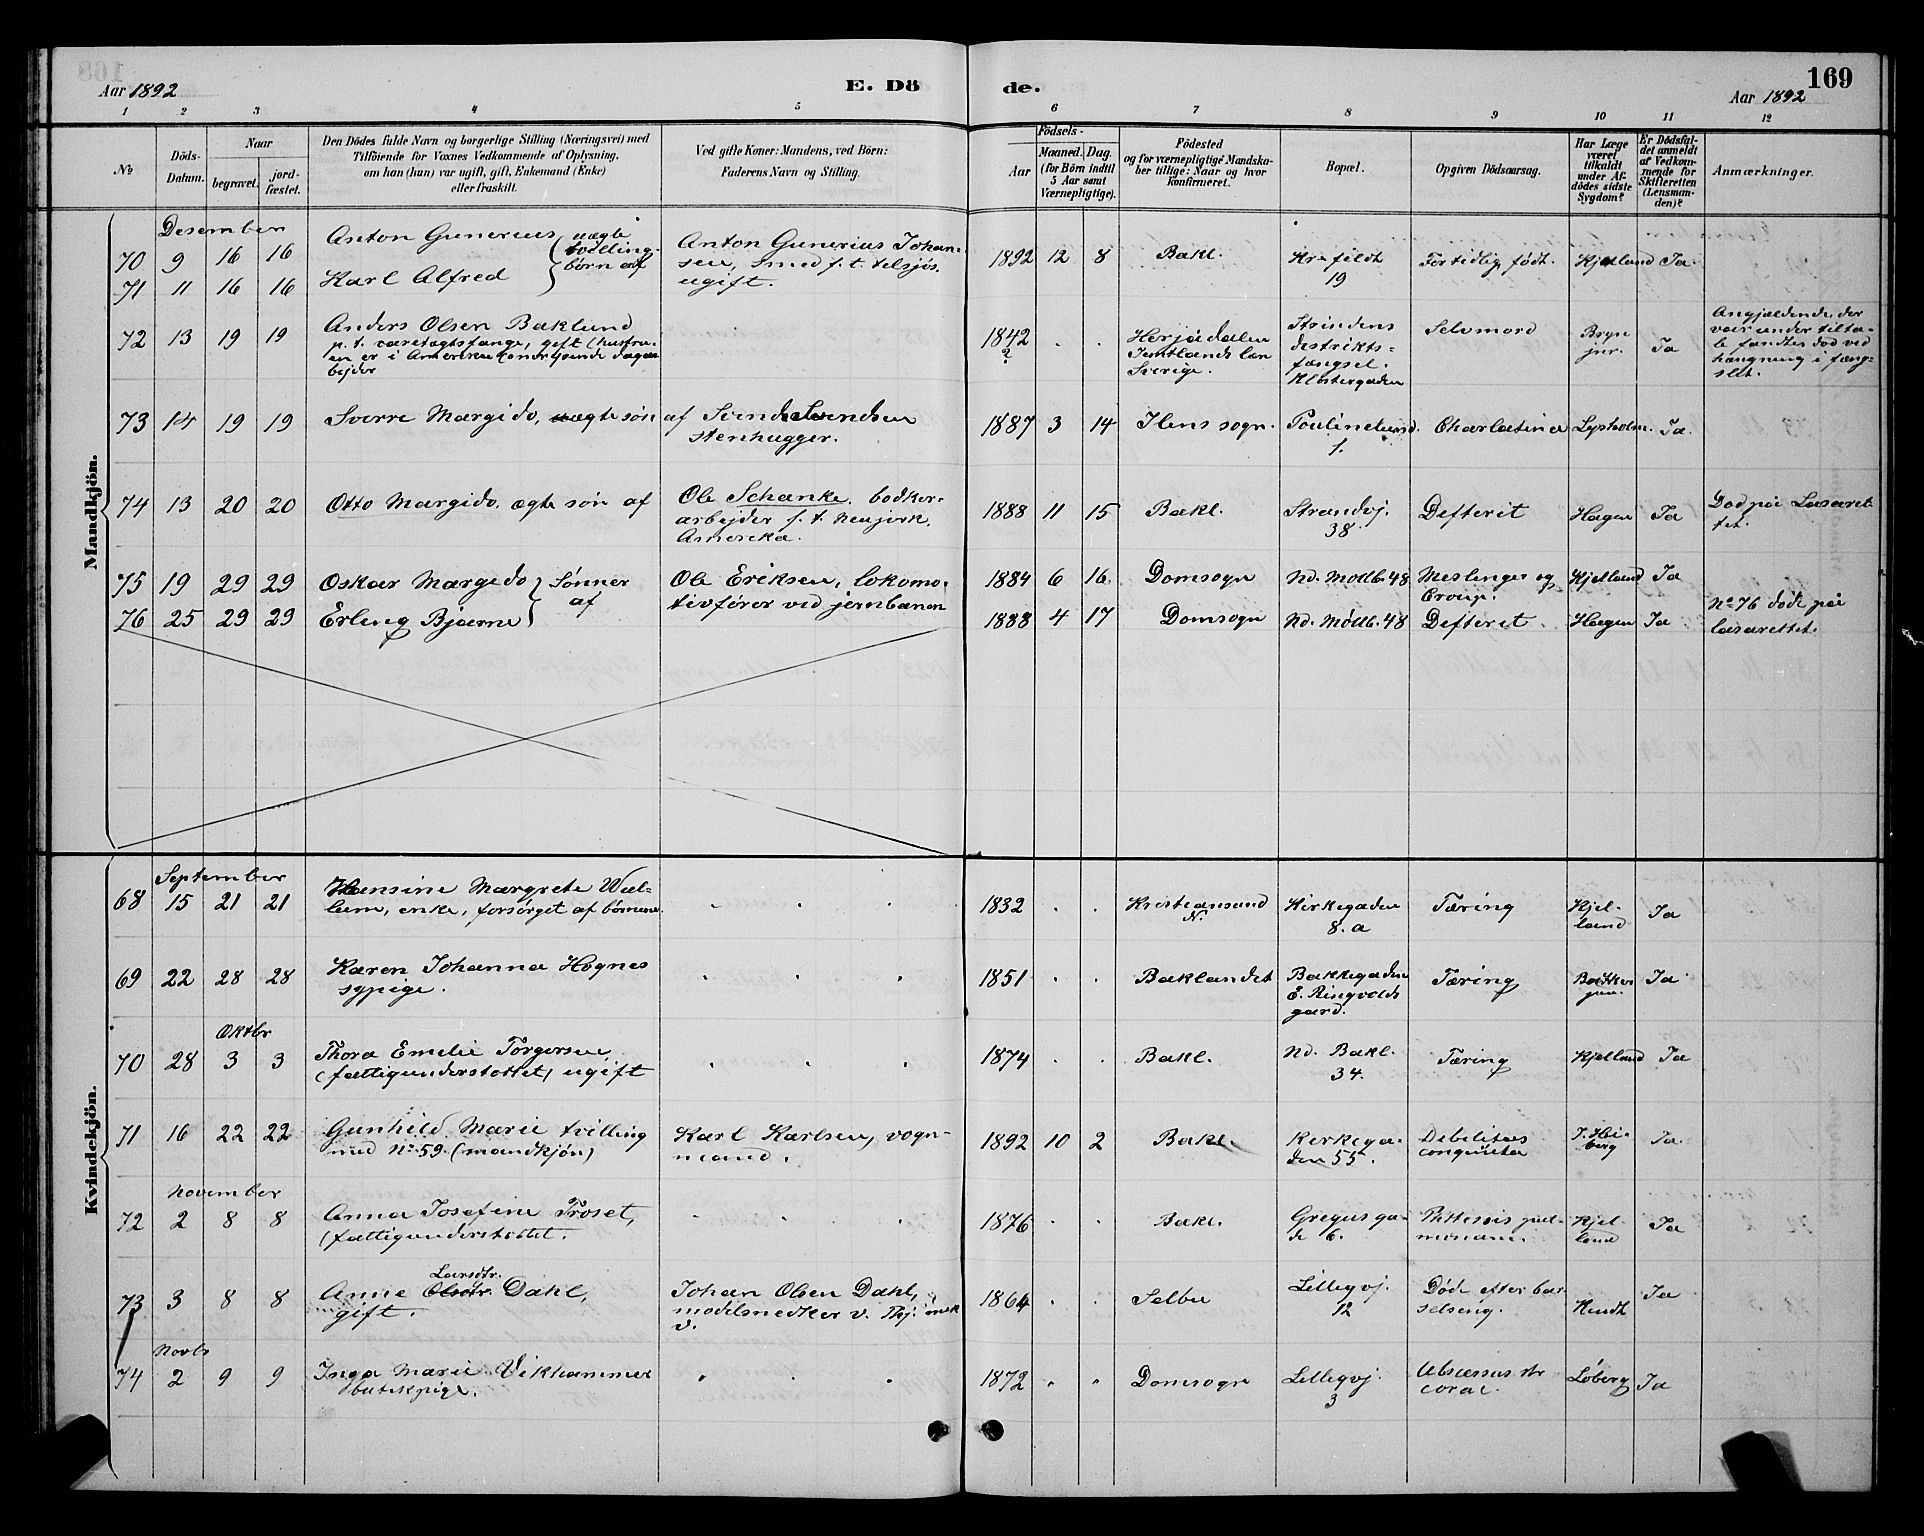 Aar 1892
E. Dö
de.
169
Aar 1892
1 2 3 4 5 6 7 8 9 10 11 12
№
Döds-Datum.
Naar
begravet.
jord-fæstet.
Den Dödes fulde Navn og borgerlige Stilling (Næringsvei) med
Tilföiende for Voxnes Vedkommende af Oplysning,
om han (hun) var ugift, gift, Enkemand (Enke)
eller fraskilt.
Ved gifte Koner: Mandens, ved Börn:
Faderens Navn og Stilling.
Födsels-
Aar
Maaned. Dag.
(for Börn indtil
5 Aar samt
Værnepligtige).
Födested
og for værnepligtige Mandska-
ber tillige: Naar og hvor
konfirmeret.
Bopæl.
Opgiven Dödsaarsag.
Har Læge
været
tilkaldt
under Af-
dödes sidste
Sygdom?
Er Dödsfal-
det anmeldt
af Vedkom-
mende for
Skifteretten
(Lensman-
den)?
Anmærkninger.
Mandkjön.
Desember
70 9 16 16 Anton Gunerius uægte tvilling- Anton Gunerius Johan- 1892 12 8 Bakl. Kr-feldt 19 For tidlig født. Kjelland Ja.
71 11 16 16 Karl Alfred børn af sen, smed f. t. tilsjøs, ugift.
72 13 19 19 Anders Olsen Baklund
p. t. varetægtsfange, gift (hustru-
en er i Amerika) dagar-
bejder
1842 ? Herjedalen Jemtlands län Sverige. Strindens distrikts-fængsel. Klostergaden Selvmord Bryn jnr. Ja
Angjældende, der
var under tilta-
le fandtes død ved
hængning i fæng-
slet.
73 14 19 19 Sverre Margido, ægte søn af Svend Svendsen
stenhugger.
1887 3 14 Ilens sogn. Poulinelund 1. Lysholm. Ja.
74 13 20 20 Otto Margido, ægte søn af Ole Schanke, bødker-
arbejder f. t. Neujork,
Amerika.
1888 11 15 Bakl. Strandvj. 38. Defterit Hagen Ja Død på Lasaret-
tet.
75 19 29 29 Oskar Margido Sønner af Ole Eriksen, lokomo- 1884 6 16. Domsogn Nd. Mollb. 48 Meslinger og Croup. Kjelland Ja
76 25 29 29 Erling Bjarne tivfører ved jernbanen 1888 4 17 Domsogn Nd. Møllb. 48 Defterit. Hagen Ja
No 76 døde på
lasarettet.
Kvindekjön.
September
68 15 21 21 Hansine Margrete Wul-
lum, enke, forsørget af børnene.
1832 Kristiansund N. Kirkegaden 8. a Tæring Kjel-land Ja
69 22 28 28 Karen Johanna Hognes
sypige.
1851 Baklandet Bakkegaden E. Ringvolds gard. Tæring Ja
Oktbr
70 28 3 3 Thora Emelie Torgersen
(fattigunderstøttet) ugift
1874 Bakl. Nd. Bakl. 34. Tæring Kjelland Ja
71 16 22 22 Gunhild Marie tvilling
med No 59. (mandkjøn)
Karl Karlsen, vogn-
mand.
1892 10 2 Bakl. Kirkega-den 55. Debilitas J. Hei-berg Ja
November
72 2 8 8 Anna Josefine Trøset,
(fattigunderstøttet.
1876 Bakl. Gregus ga-de 6. Kjel-land Ja
73 3 8 8 Anne Larsdtr. Dahl,
gift.
Johan Olsen Dahl,
modelsnedker v. Thj. mek
v.
1864 Selbu Lillegvj. 12 Døde efter bar-
selseng. Ja
Novb
74 2 9 9 Inga Marie Vikhammer
butikpige.
1872 Domsogn Lillegvj. 3 Løberg Ja